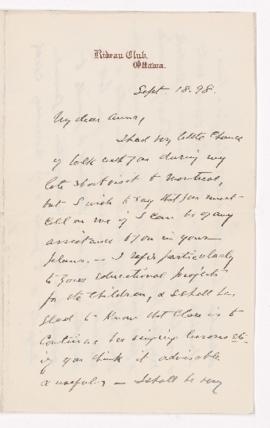 Rideau Club,
Ottawa.
Sept. 18. 98.
My dear
I had very little chance
of talk with you during my
late short visit to Montreal,
but I wish to say that you must
call on me if I can be of any
assistance to you in your
plans. — I refer particularly
to your educational projects
for the children, & I shall be
glad to know that Clare is to
continue her singing lessons
if you think it advisable
& useful. — I shall be very